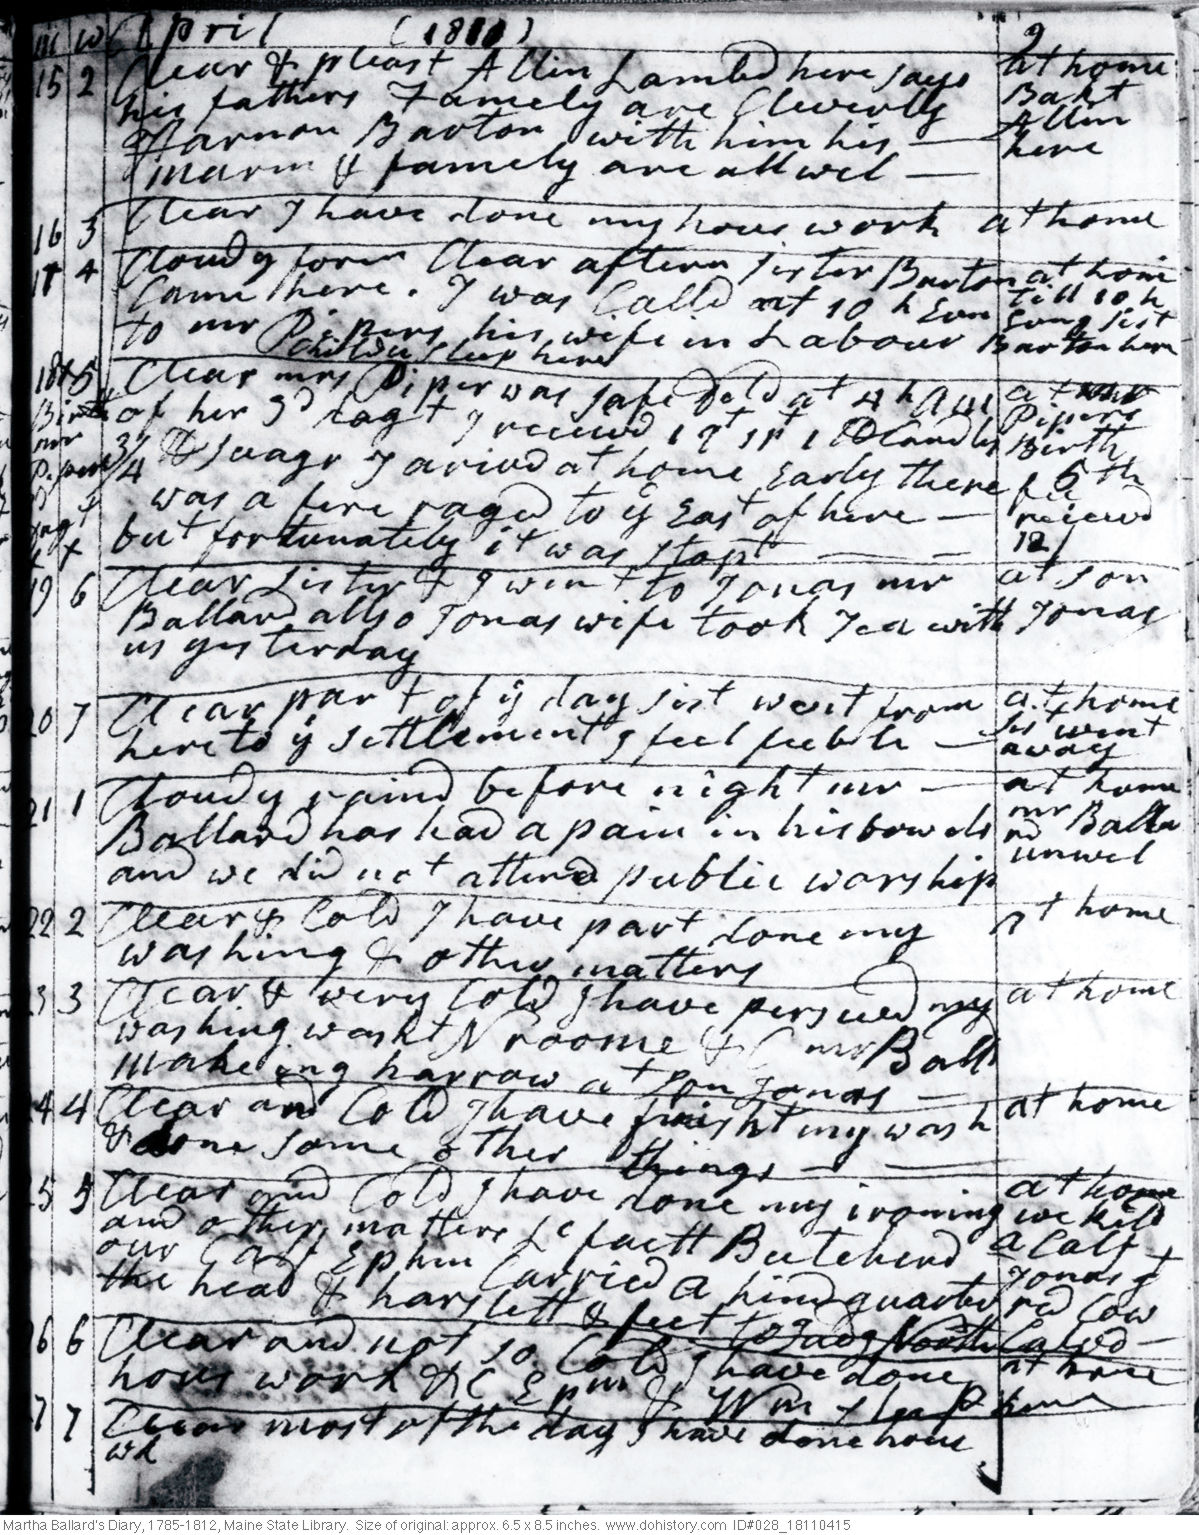 m w April (1811) 9
15 2 Clear & pleast Allin Lambd here says at home
his fathers Famely are Cleverly Bart
Parnon Barton with him his — Allin
marm & famely are all wel — here
16 3 Clear I have done my hous work at home
17 4 Cloudy foren Clear aftern sister Barton at home
Came here. I was Calld at 10 h Evn till 10 h
to mr Pipers his wife in Labour Evng sist
Children sleep here Barton here
18 5 Clear mrs Piper was safe deld at 4 h Am at mr
Birth of her 3d dagt I receivd Pipers
mr 37 & sugar I arivd at home Early there Birth
Pipers 4 was a fire raged to ye East of here — 6th
dagt but fortunately it was stopt — — fee
x x receivd
12/
19 6 Clear sister & I went to Jonas mr at son
Ballard allso Jonas wife took Tea with Jonas
us yesterday
20 7 Clear part of ye day sist went from at home
here to ye settlement I feel feeble — sist went
away
21 1 Cloudy raind before night mr — at home
Ballard has had a pain in his bowels mr Balla
and we did not attend public worship rd unwel
22 2 Clear & Cold I have part done my at home
washing & other matters
23 3 Clear & very Cold I have persued my at home
washing washt N roome & C mr Ball
makeing harrow at son Jonas —
24 4 Clear and Cold I have finisht my wash at home
& done some other things — —
25 5 Clear and Cold I have done my ironing at home
and other matters &c faett Butcherd we kild
our Calf Ephm Carried a hind quarter a Calf
the head & harslett & feet to Judg North Jonas
red Cow
Calvd —
26 6 Clear and not so Cold I have done at home
hous work & C Epm & Wm sleep here
27 7 Clear most of the day I have done hous
wk
Martha Ballard's Diary, 1785-1812, Maine State Library. Size of original: approx. 6.5 x 8.5 inches. www.dohistory.com ID#028_18110415